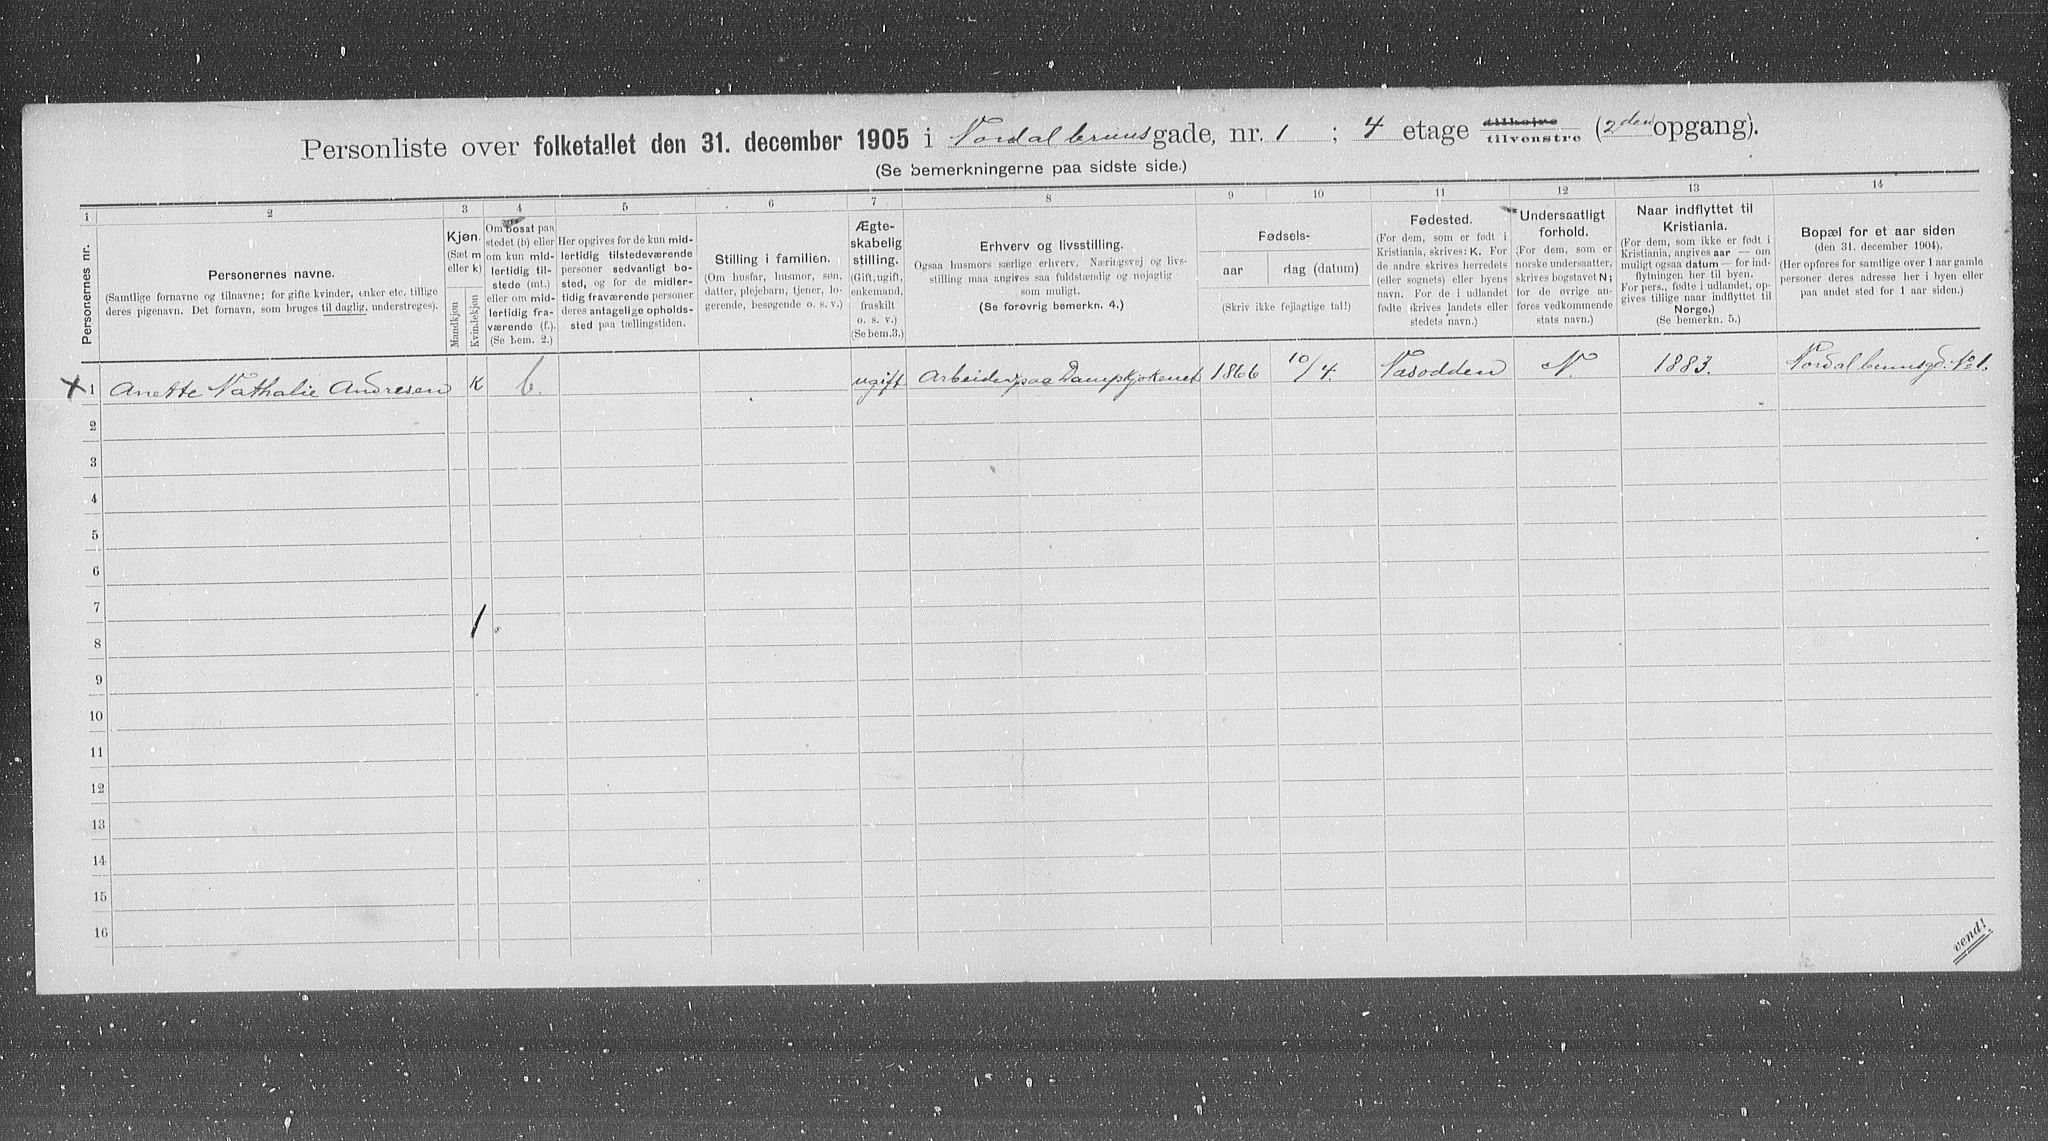 Personliste over folketallet den 31. december 1905 i Nordal brunsgade, nr. 1 ; 4 etage tilhøjre tilvenstre (2den opgang).
(Se bemerkningerne paa sidste side.)
1 2 3 4 5 6 7 8 9 10 11 12 13 14
Personernes nr.
Personernes navne.
(Samtlige fornavne og tilnavne; for gifte kvinder, enker etc. tillige
deres pigenavn. Det fornavn, som bruges til daglig, understreges).
Kjøn.
(Sæt m
eller k)
Mandkjøn
Kvindekjøn
Om bosat paa
stedet (b) eller
om kun mid-
lertidig til-
stede (mt.)
eller om mid-
lertidig fra-
værende (f.).
(Se bem. 2.)
Her opgives for de kun mid-
lertidig tilstedeværende
personer sedvanligt bo-
sted, og for de midler-
tidig fraværende personer
deres antagelige opholds-
sted paa tællingstiden.
Stilling i familien.
(Om husfar, husmor, søn,
datter, plejebarn, tjener, lo-
gerende, besøgende o. s. v.)
Ægte-
skabelig
stilling.
(Gift, ugift,
enkemand,
fraskilt
o. s. v.)
(Se bem.3.)
Erhverv og livsstilling.
Ogsaa husmors særlige erhverv. Næringsvej og livs-
stilling maa angives saa fuldstændig og nøjagtig
som muligt.
(Se forøvrig bemerkn. 4.)
Fødsels-
aar
dag (datum)
(Skriv ikke fejlagtige tal!)
Fødested.
(For dem, som er født i
Kristiania, skrives: K. For
de andre skrives herredets
(eller sognets) eller byens
navn. For de i udlandet
fødte skrives landets eller
stedets navn.)
Undersaatligt
forhold.
(For dem, som er
norske undersaatter,
skrives bogstavet N;
for de øvrige an-
føres vedkommende
stats navn.)
Naar indflyttet til
Kristiania.
(For dem, som ikke er født i
Kristiania, angives aar — om
muligt ogsaa datum — for ind-
flytningen her til byen.
For pers., fødte i udlandet, op-
gives tillige naar indflyttet til
Norge.)
(Se bemerkn. 5.)
Bopæl for et aar siden
(den 31. december 1904).
(Her opføres for samtlige over 1 aar gamle
personer deres adresse her i byen eller
paa andet sted for 1 aar siden.)
x 1 Anette Nathalie Andresen K b. ugift Arbeider paa Dampskjøkenet 1866 10/4. Nasodden N 1883. Nordal brunsgd. No 1.
2
3
4
5
6
7
1.
8
9
10
11
12
13
14
15
16
vend!